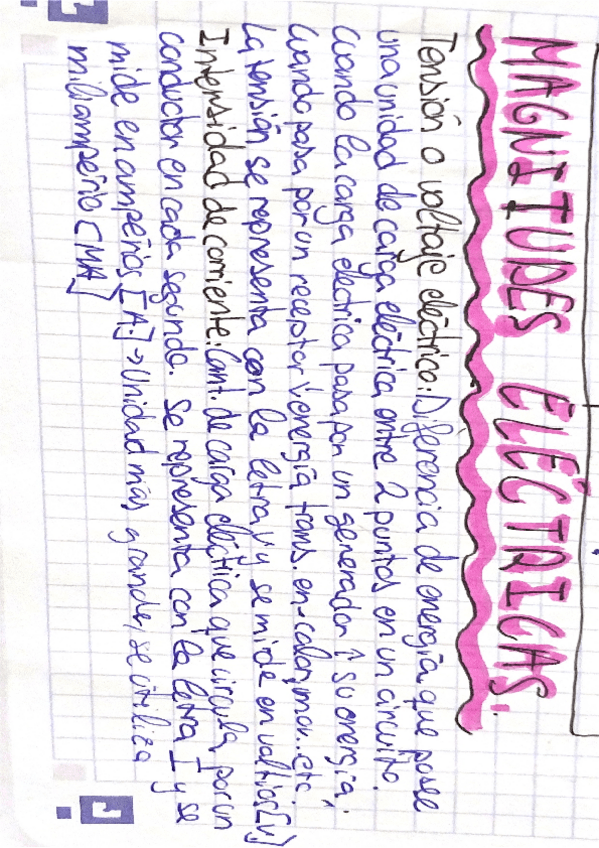 MAGNITUDES ELÉCTRICAS.
Tensión o voltaje eléctrico: Diferencia de energía que posee
una unidad de carga eléctrica entre 2 puntos en un circuito.
Cuando la carga eléctrica pasa por un generador ↑ su energía,
cuando pasa por un receptor ↓ energía trans. en-calor, mov. etc.
La tensión se representa con la letra V y se mide en voltios [V]
Intensidad de corriente: Cant. de carga eléctrica que circula por un
conductor en cada segundo. Se representa con la letra I y se
mide en amperios [A.] → Unidad más grande, se utiliza
miliamperio [MA]